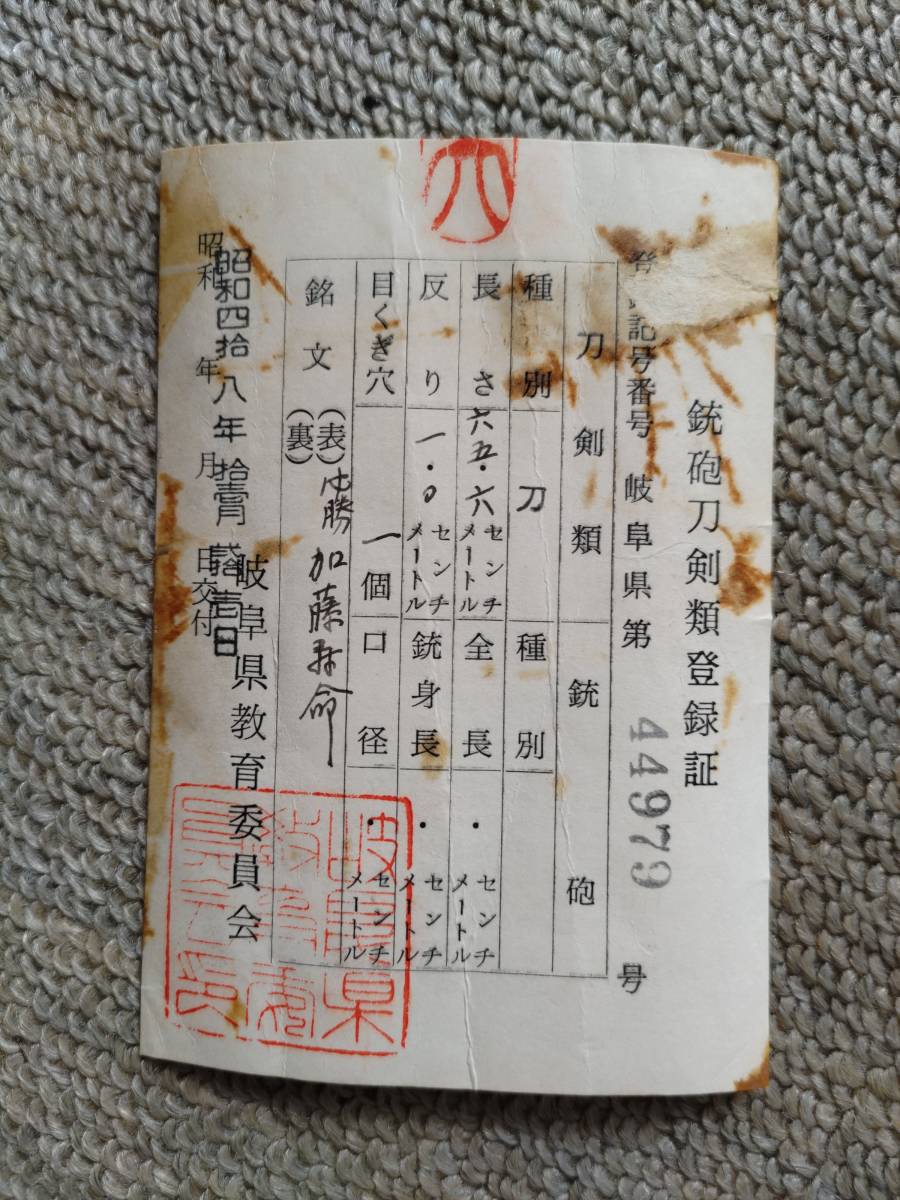 銃砲刀剣類登録証
登 記号番号 岐阜県第 44979 号
刀剣類 銃砲
種別 刀 種別
長さ 六五・六 センチメートル 全長 ・ センチメートル
反り 一・〇 センチメートル 銃身長 ・ センチメートル
目くぎ穴 一個 口径 ・ センチメートル
銘文 (表) 必勝 加藤寿命
(裏)
昭和 年 月 日交付
昭和四拾八年拾壹月 壱日
岐阜県教育委員会
岐阜県教育委員会印